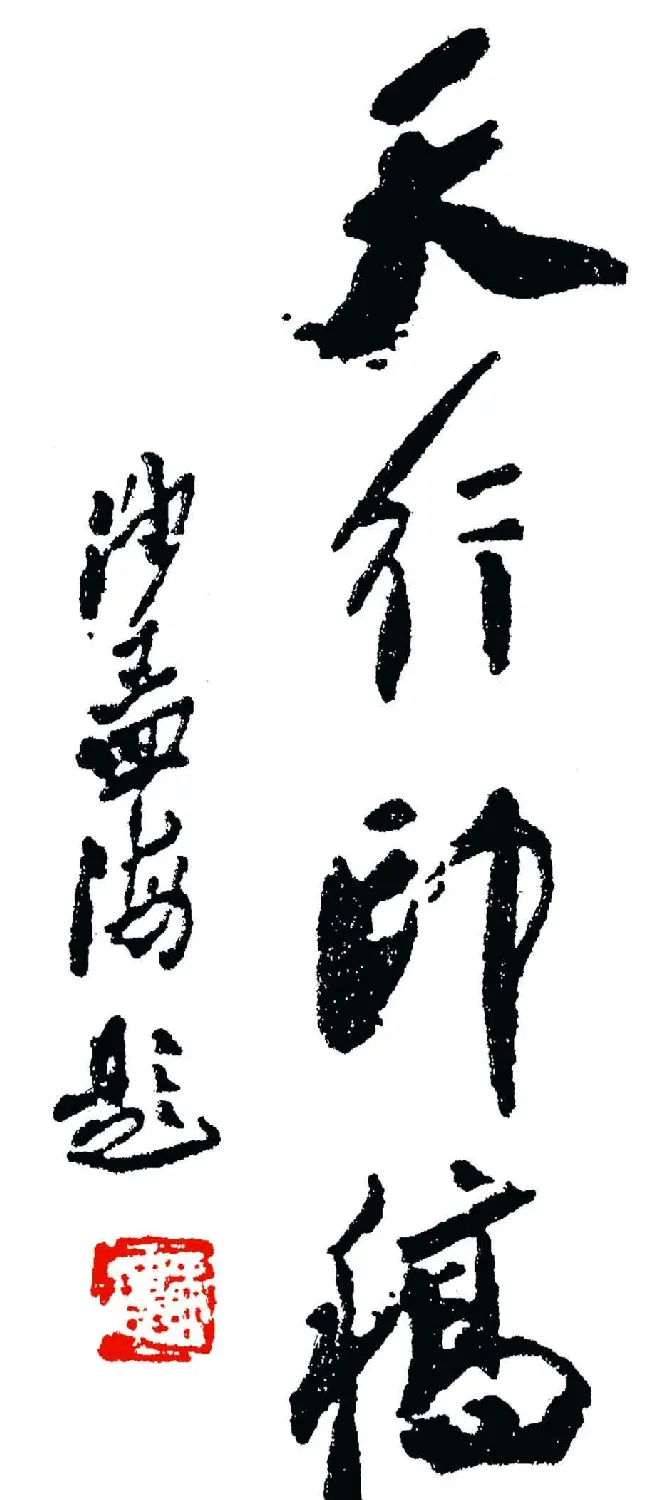 天行印稿
沙孟海题